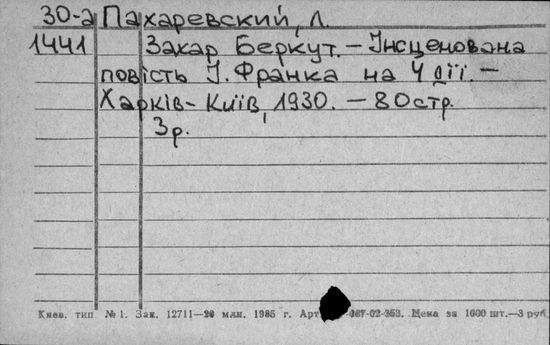 30-а Пахаревский, Л.
1441 Захар Беркут. – Інсценована
повість І. Франка на 4 дії. –
Харків-Київ, 1930. – 80стр.
3р.
Киев. тип №1. Зак. 12711—20 млн. 1985 г. Арт 087-02-353. Цена за 1000 шт.—3 руб